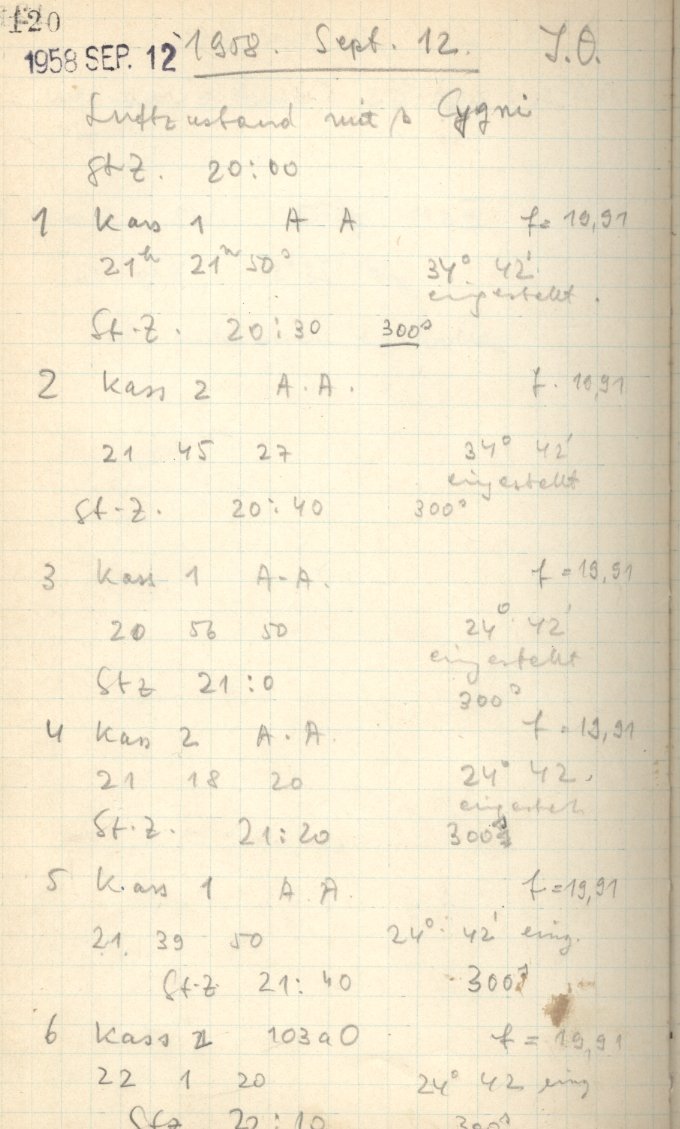 120
1958 SEP. 12
1958. Sept. 12. J.O.
Luftzustand mit β Cygni
St Z. 20:00
1 Kass 1 A A f= 19,91
21h 21m 50s 34° 42'
eingestellt.
St.Z. 20:30 300s
2 Kass 2 A.A. f. 19,91
21 45 27 34° 42'
eingestellt
St-Z. 20:40 300s
3 Kass 1 A-A. f = 19,91
20 56 50 24° 42'
eingestellt
St z 21:0 300s
4 Kass 2 A.A f. 19,91
21 18 20 24° 42.
St.Z. 21:20 300s
5 Kass 1 A A. f = 19,91
21. 39 50 24° 42' eing.
St.Z 21:40 300s
6 Kass 103aO f = 19,91
22 1 20 24° 42 eing
Stz 22:10 300s